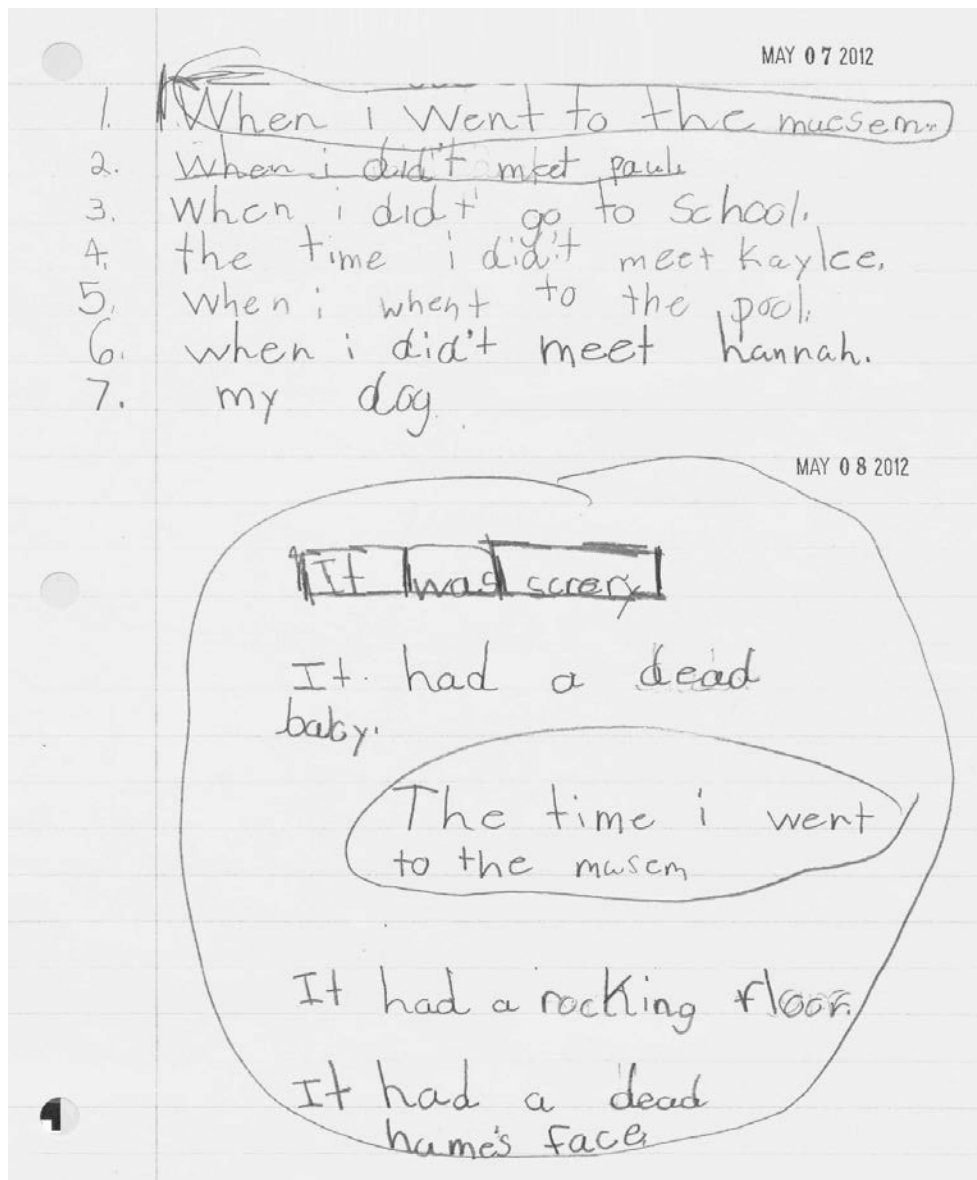 MAY 07 2012
1. When i Went to the muesem.
2. When i did't meet paul.
3. When i did't go to School.
4. the time i did't meet kaylee.
5. when i whent to the pool.
6. when i did't meet hannah.
7. my dog
MAY 08 2012
It was screry
It had a dead
baby.
The time i went
to the musem
It had a rocking floor.
It had a dead
hame's face